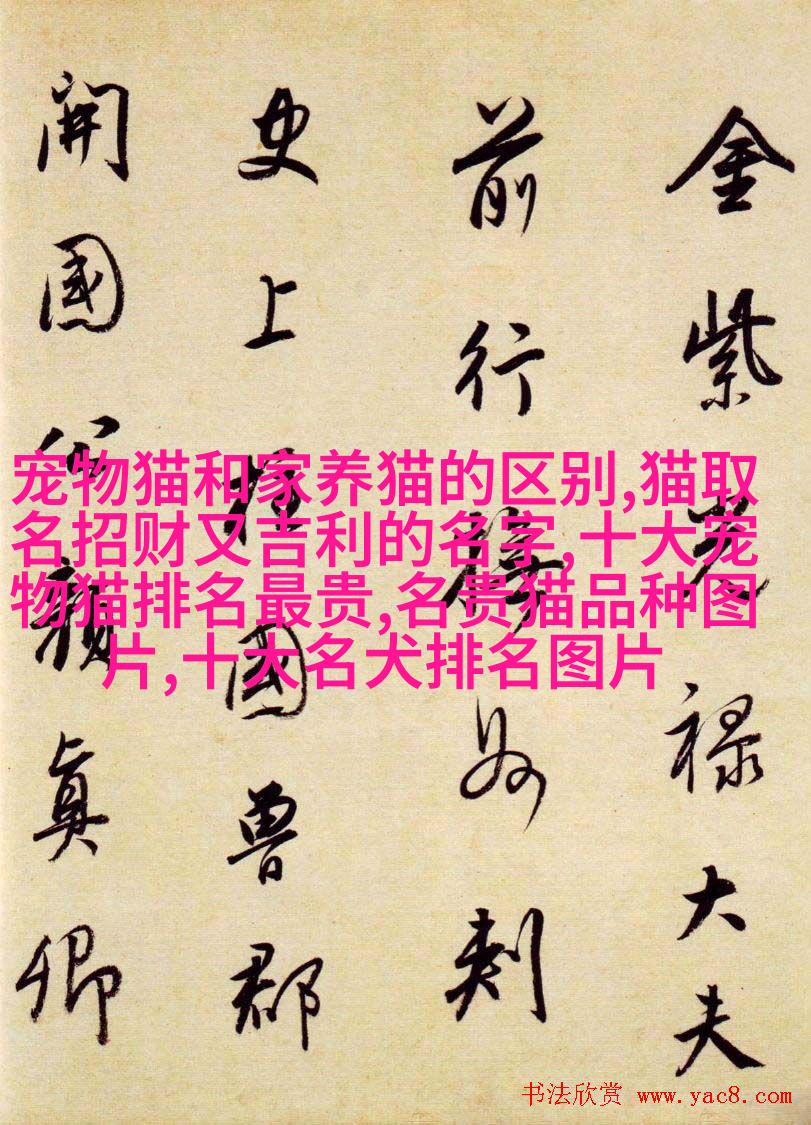 金紫光禄大夫
前行州刺
史上柱國魯郡
開國公顏眞卿
宠物猫和家养猫的区别,猫取
名招财又吉利的名字,十大宠
物猫排名最贵,名贵猫品种图
片,十大名犬排名图片
书法欣赏 www.yac8.com